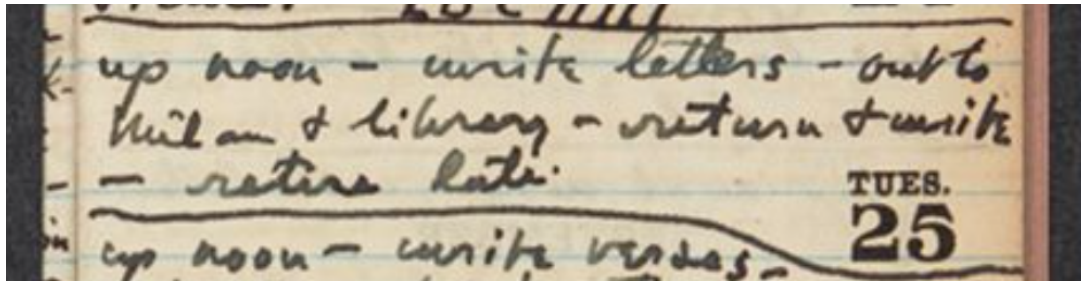 up noon – write letters – out to
Milan & library – return & write
– retire late.
TUES.
25
up noon – write verses –